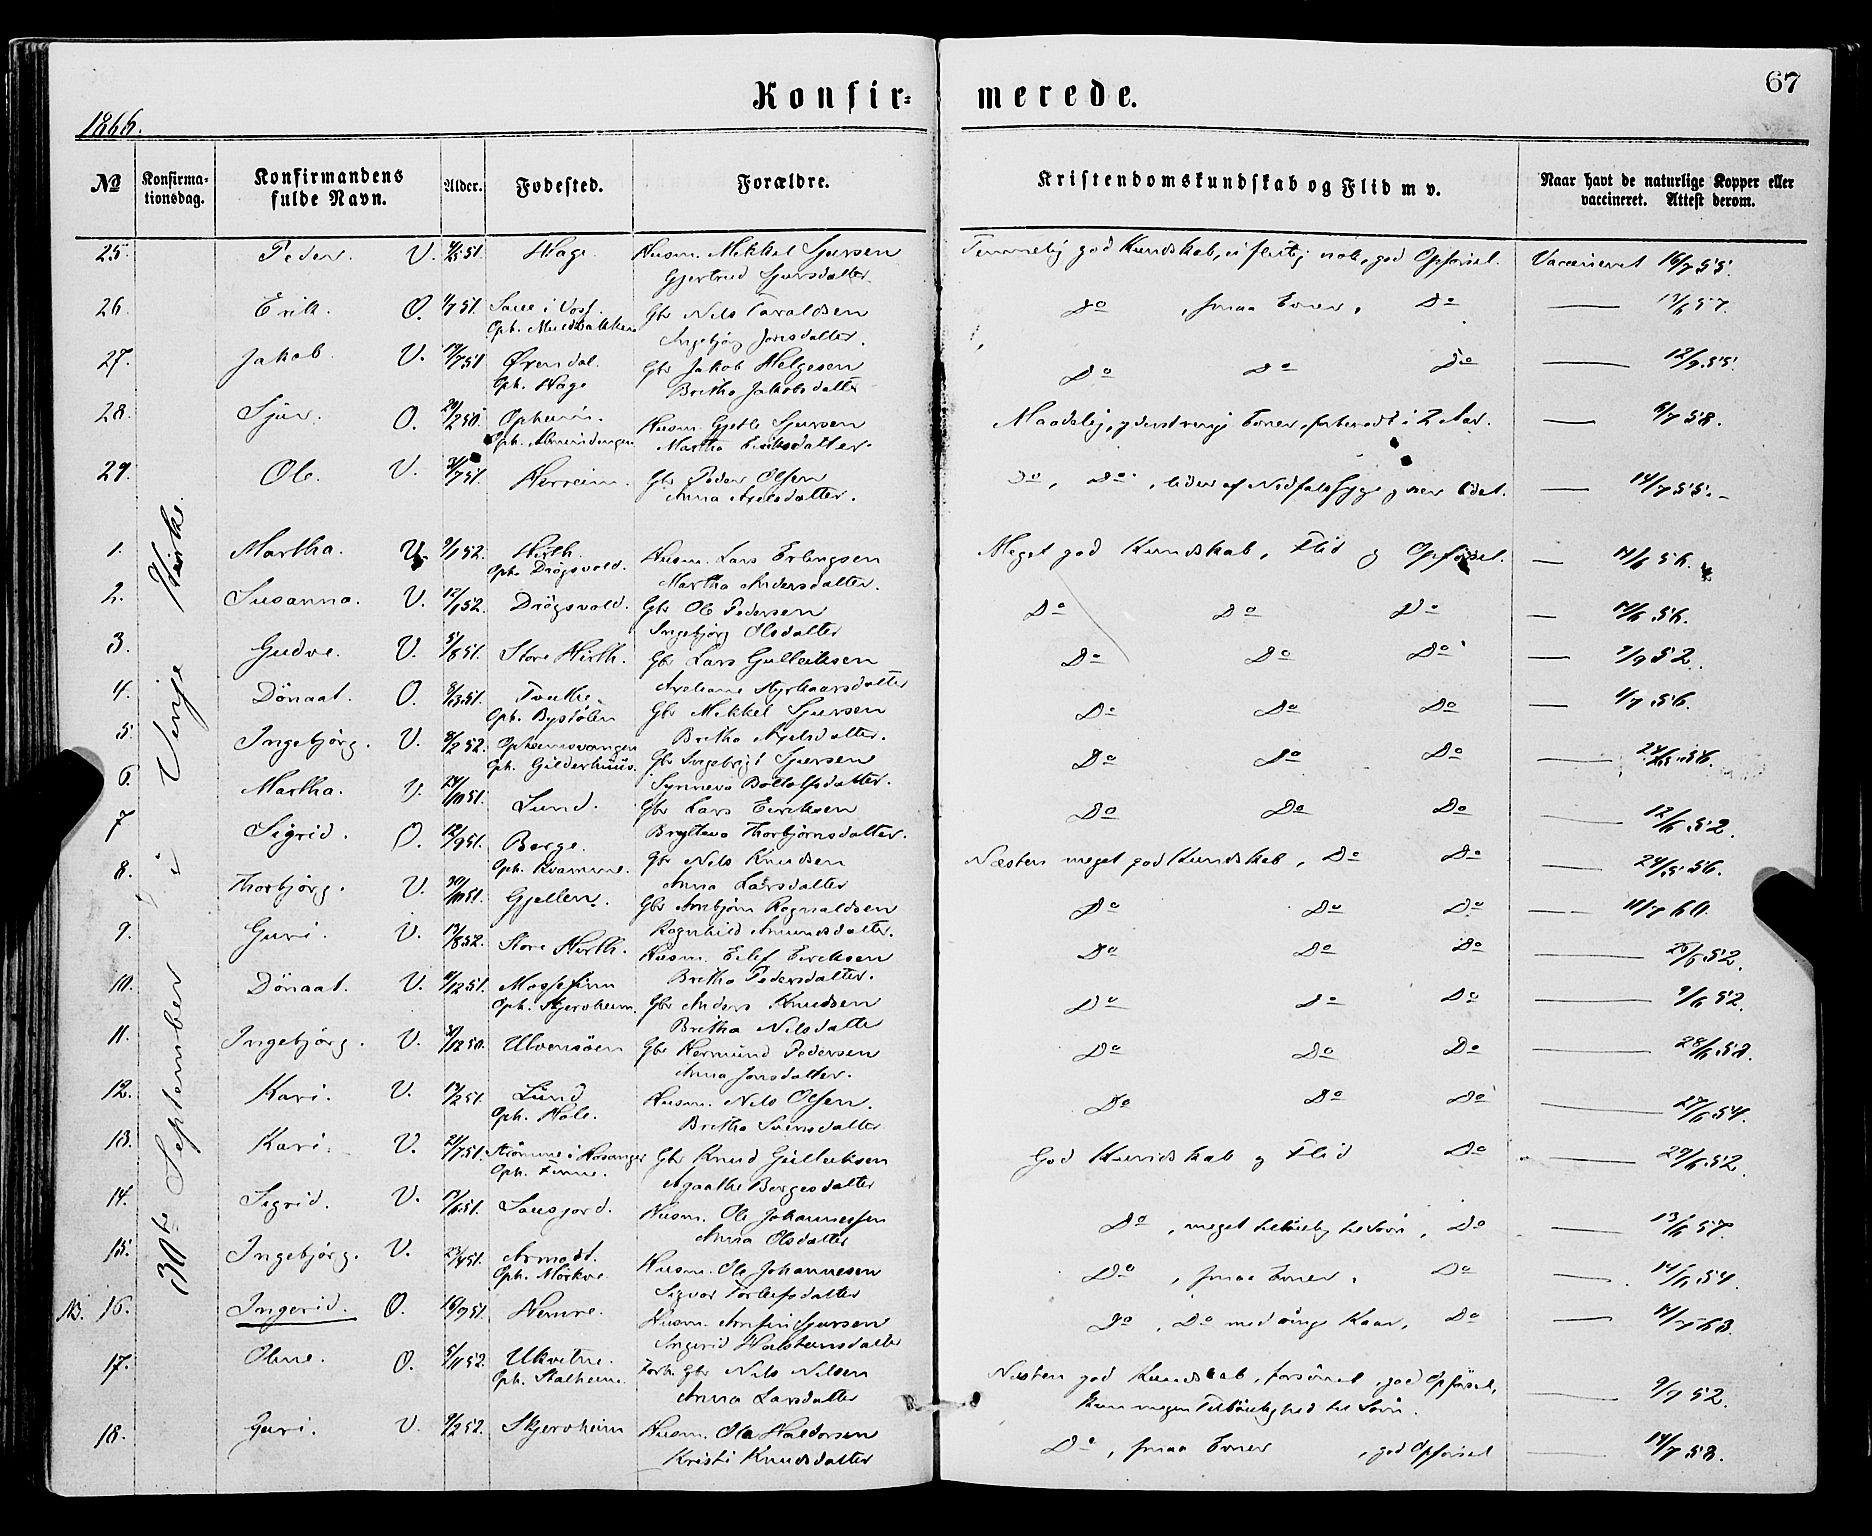 67
Konfir- merede.
1866.
No Konfirma-tionsdag. Konfirmandens fulde Navn. Alder. Fødested. Forældre. Kristendomskundskab og Flid m v. Naar havt de naturlige Kopper eller vaccineret. Attest derom.
25. Peder. V. Hage. Husm. Mikkel Sjursen Temmelig god Kundskab, ei flittig nok, god Opførsel. Vaccineret 16/7 55.
Gjertrud Sjursdatter.
26. Erik. O. 1/7 51. Saue i Voss. Gbr Nils Taraldsen Do , smaa Evner, Do — 57.
Oph. Ingebjørg Jonsdatter.
27. Jakob. V. 17/7 51 Øvendal. Gbr Jakob Helgesen Do Do Do — 12/9 55.
Oph. Hage Britha Jakobsdatter
28. Sjur. O. 20/2 50. Opheim. Husm. Gjetle Sjursen Maadelig, yderst ringe Evner, forberedt i 2 Aar. — 6/7 58.
Martha Eriksdatter.
29. Ole. V. Herreim. Gbr Peder Olsen Do, Do , lider af Nedfaldssyge — 14/7 55. -
Anna Axelsdatter.
30te September i Vinje Kirke.
1. Martha. V. 9/1 52. Hirth. Husm. Lars Erlingsen Meget god Kundskab, Flid og Opførsel. — 14/6 56.
Oph. Drøgsvold. Martha Andersdatter.
2. Susanna. V. 12/1 52. Drøgsvold. Gbr Ole Pedersen Do Do Do — 14/6 56.
Ingebjørg Olsdatter
3. Gudve. V. 5/8 51. Store Hirth. Gbr Lars Gulleiksen Do Do Do — 9/9 52.
4. Dönaat. O. Tvedte Gbr Mikkel Sjursen Do Do Do — 1/7 56.
Oph. Bystølen Britha Axelsdatter.
5. Ingebjørg. V. 8/2 52. Opheimsvangen Gbr Ingebrigt Sjursen Do Do Do — 24/5 56.
Oph. Gilderhuus. Synneva Botolfsdatter.
6. Martha. V. 24/10 51. Lund. Gbr Lars Eiriksen Do Do Do — 12/6 52.
Brytteva Thorbjørnsdatter.
7 Sigrid. O. 12/9 51. Berge. Gbr Nils Knudsen Næsten meget god Kundskab, Do Do — 24/5 56.
Oph. Kvamme. Anna Larsdatter
8. Thorbjørg. V. 30/10 51. Gjellen. Gbr Arnbjørn Ragnvaldsen Do Do Do — 11/7 60.
Ragnhild Amundsdatter.
9. Guri. V. 13/8 52. Store Hirth. Husm. Eilef Eiriksen Do Do Do — 26/6 52.
Britha Pedersdatter.
10. Dönaat. V. 11/12 51. Mossefinn Gbr Anders Knudsen Do Do Do — 9/6 52.
Oph. Skjervheim. Britha Nilsdatter
11. Ingebjørg. V. Ulvensöen Gbr Hermund Pedersen Do Do Do — 28/6
Anna Jonsdatter.
12. Kari. V. 17/2 51. Lund Husm. Nils Olsen. Do Do Do — 27/6 54.
Oph. Hole. Britha Svensdatter
13. Kari. V. 21/7 51. i Hosanger Gbr Knud Gulleiksen God Kundskab og Flid Do — 29/6 52.
Oph. Finne. Agathe Borgesdatter
14. Sigrid. V. 17/6 51. Sausjord. Husm. Ole Johannessen Do , meget Do — 13/6 57.
Anna Olsdatter
15. Ingebjørg. V. 23/4 51. Armodt. Husm. Ole Johannesen Do , smaa Evner, Do — 14/6 54.
Oph. Mörkve Sigvor Torleifsdatter
NB. 16. Ingerid. O. 16/9 51. Hemre. Husm. Arnfin Sjursen Do , Do Do — 14/7 63.
Ingerid Halstensdatter
17. Oline. O. 5/11 52. Ulkvitne. Forh. Gbr Nils Nilsen Næsten god Kundskab, forsömt, god Opførsel, — 9/7 52.
Oph. Stalheim. Anna Larsdatter
18. Guri. V. 9/2 52. Skjervheim Husm. Ola Haldorsen Do , smaa Evner , god Opførsel — 14/7 58.
Kristi Knudsdatter